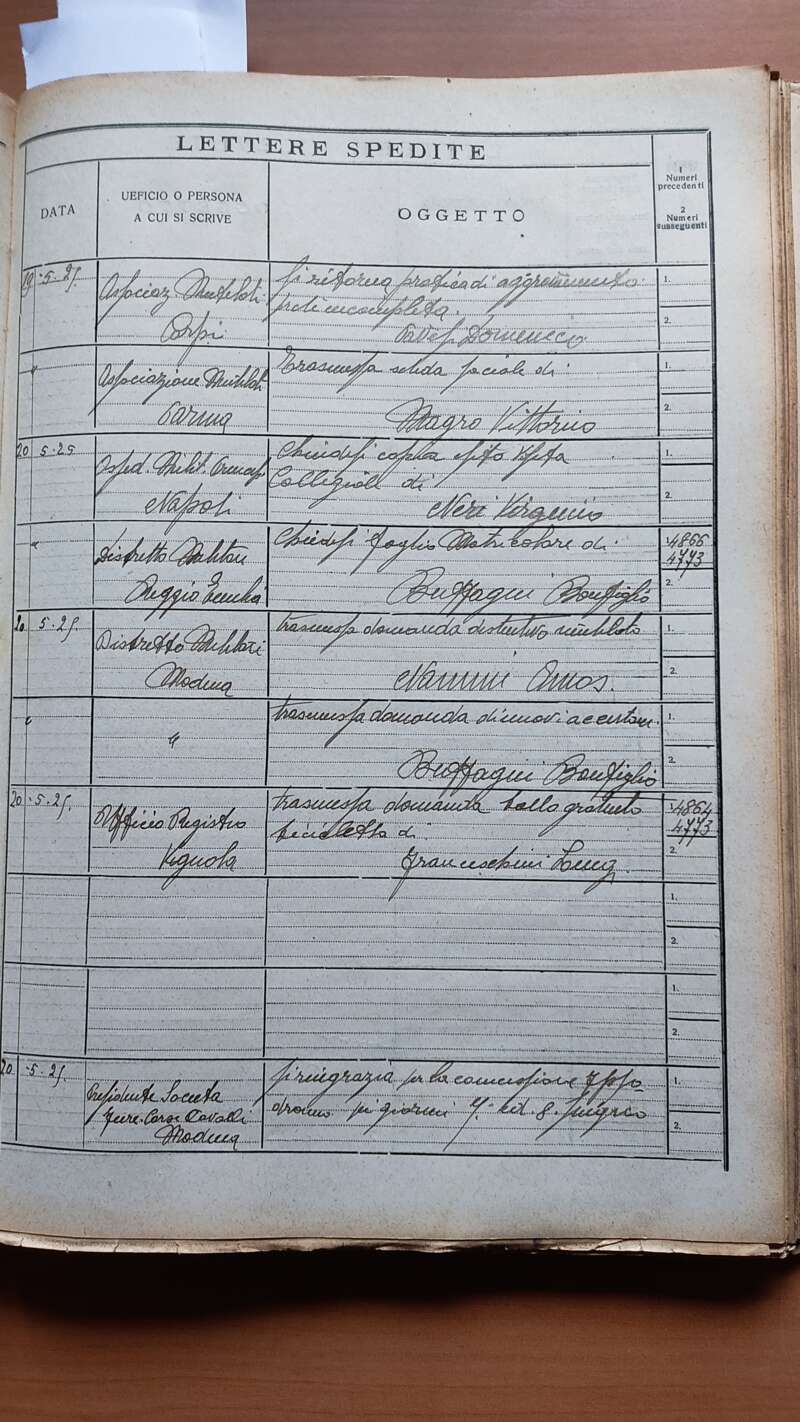 LETTERE SPEDITE
DATA
UFFICIO O PERSONA
A CUI SI SCRIVE
OGGETTO
1
Numeri
precedenti
2
Numeri
susseguenti
19 -5-25.
Associaz. Mutilati
Carpi
si ritorna pratica di
perchè incompleta.
Domenico
1.
2.
"
Associazione Mutilati
Parma
Trasmessa scheda sociale di
Magro Vittorio
1.
2.
20 5-25
Osped. Milit. Princip.
Napoli
Chiedesi copia esito visita
Collegiale di
Neri Virginio
1.
2.
"
Distretto Militare
Reggio Emilia
Chiedesi foglio Matricolare di
Buffagni Bonfiglio
1. 4866
4773
2.
20 5-25.
Distretto Militari
Modena
trasmessa domanda distintivo mutilato
Nannini Amos.
1.
2.
"
"
trasmessa domanda di nuovi accertam.
Buffagni Bonfiglio
1.
2.
20 -5-25.
Ufficio Registro
Vignola
trasmessa domanda bollo gratuito
bicicletta di
Franceschini Luig.
1. 4864
4773
2.
1.
2.
1.
2.
20. -5-25.
Presidente Società
Corse Cavalli
Modena
si ringrazia per la concessione Ippo-
dromo pei giorni 7. ed 8. Giugno
1.
2.